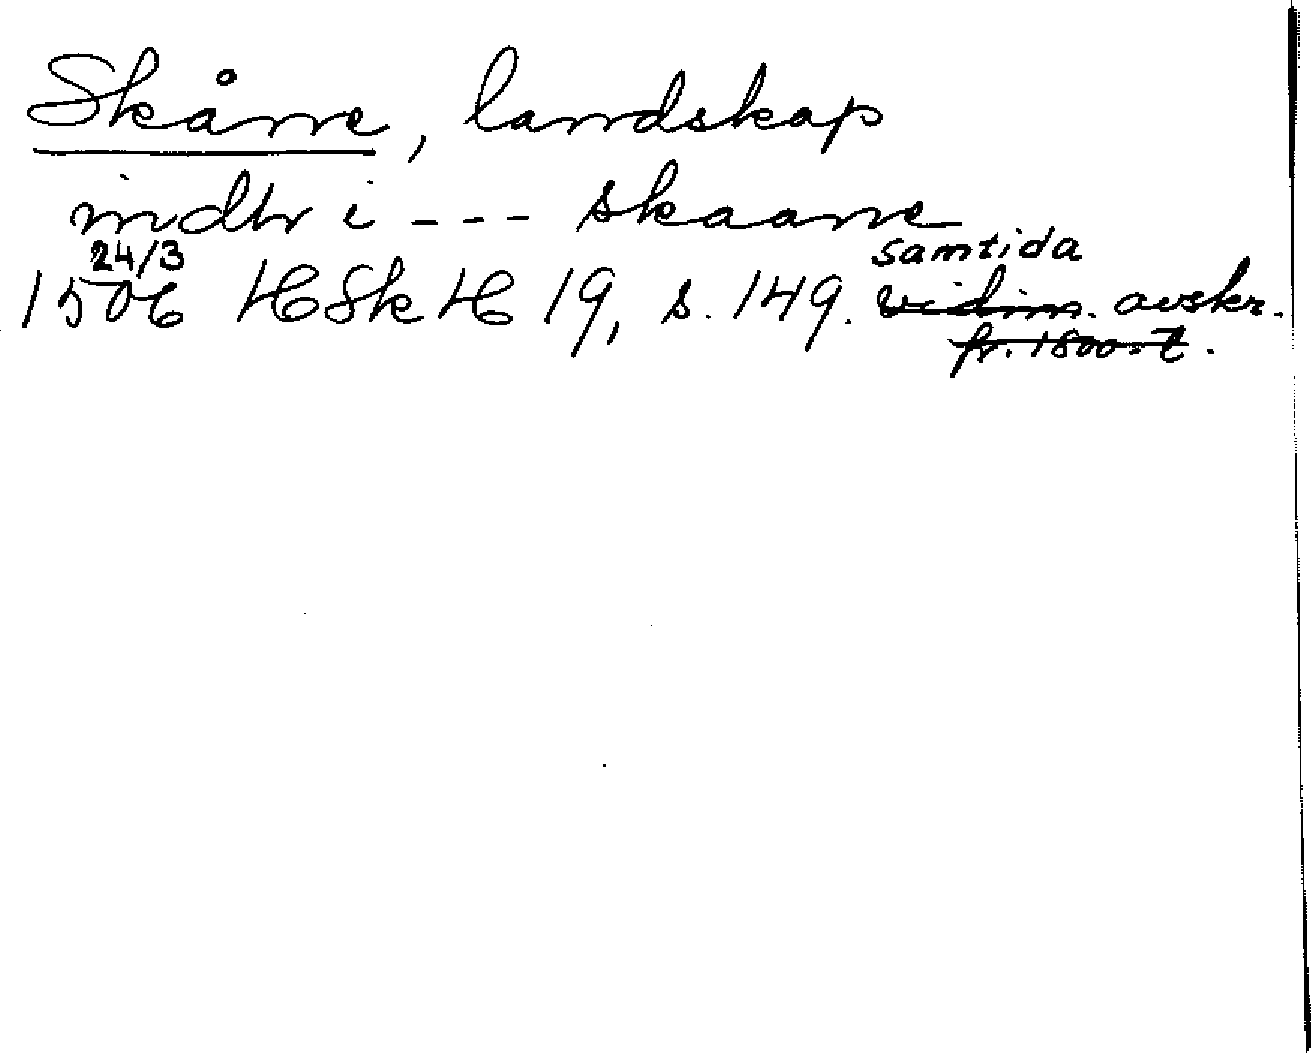 Skåne, landskap
indtr i --- skaane
24/3 samtida
1506 HSkH 19, s. 149. vidim. avskr.
fr. 1800-t.